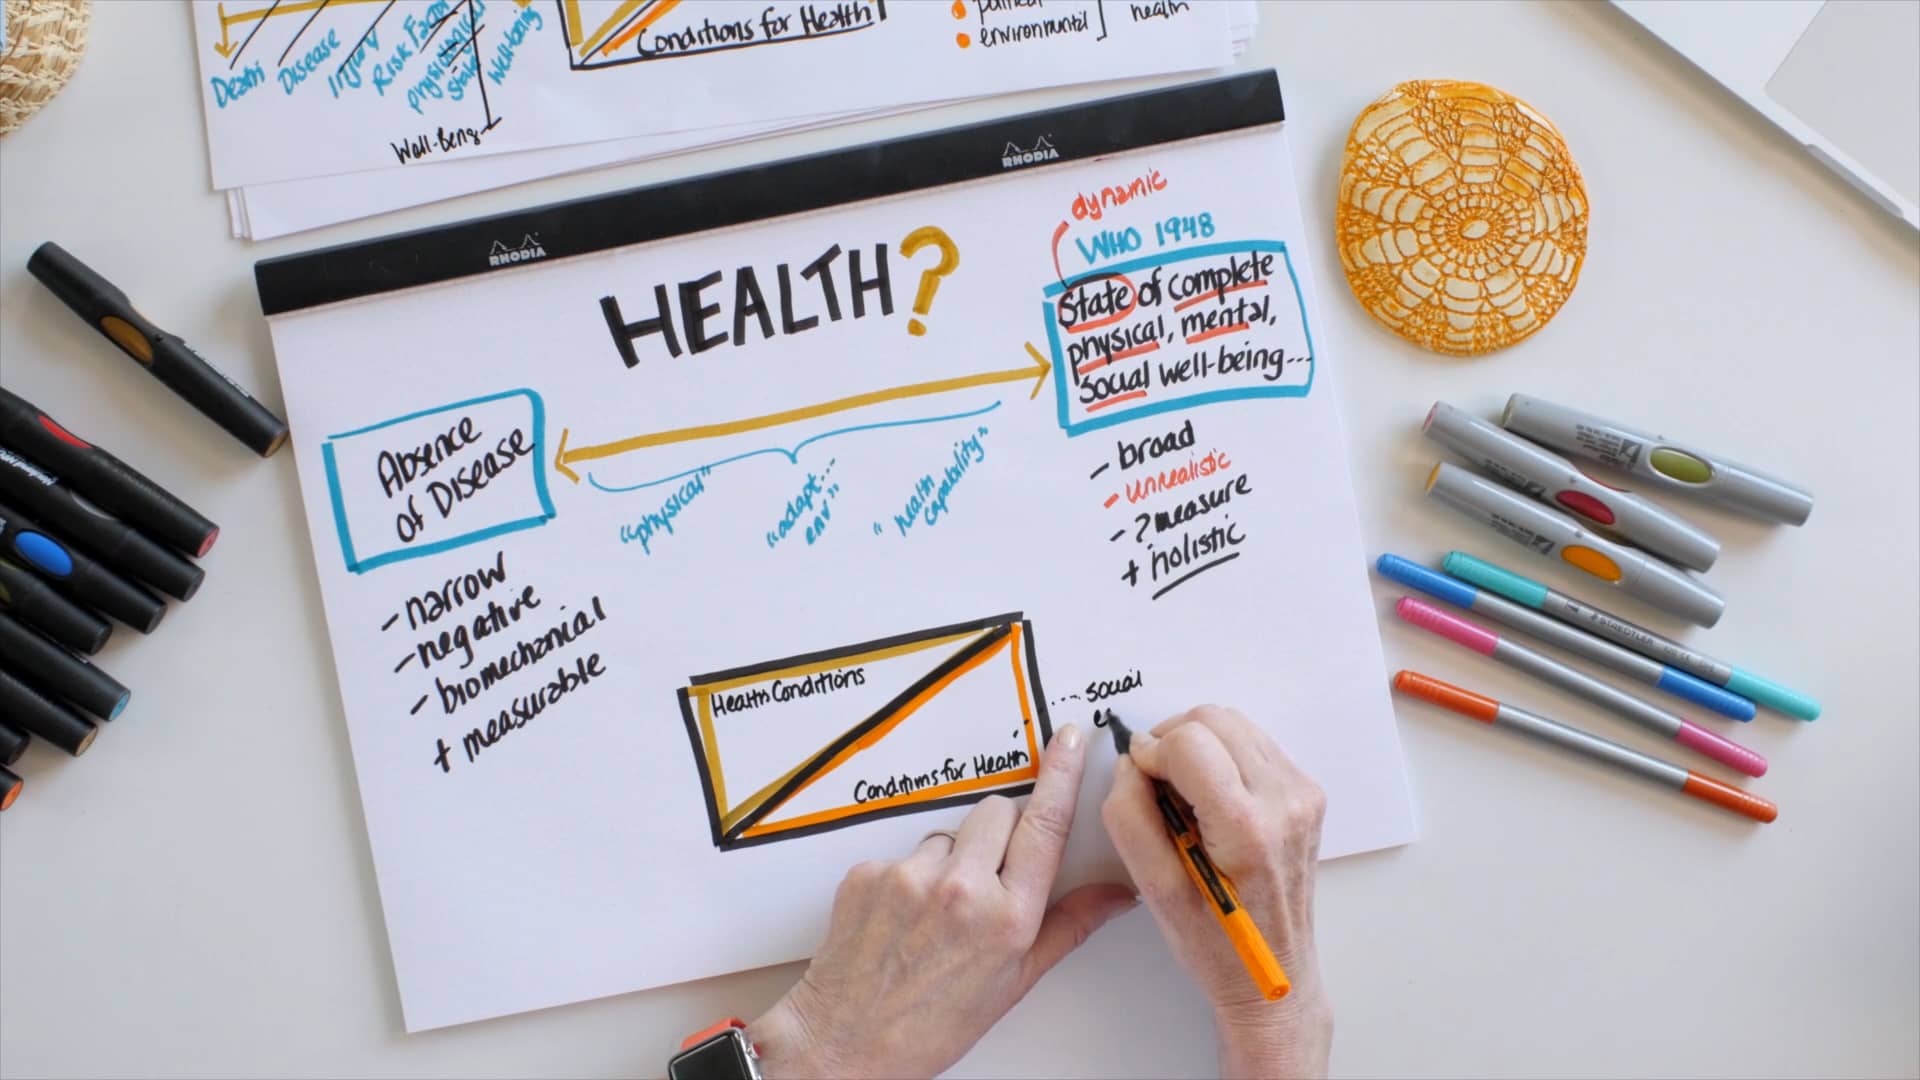 Death
Disease
Injury
Risk Factor
physiological
state
Well-being
Well-being
Conditions for Health
environmental
health
RHODIA
RHODIA
HEALTH?
dynamic
WHO 1948
State of complete
physical, mental,
social well-being...
Absence
of Disease
"physical"
"adapt...
env"
"health
capability"
- broad
- unrealistic
- ? measure
+ holistic
- narrow
- negative
- biomechanical
+ measurable
Health Conditions
Conditions for Health
... social
e
STAEDTLER